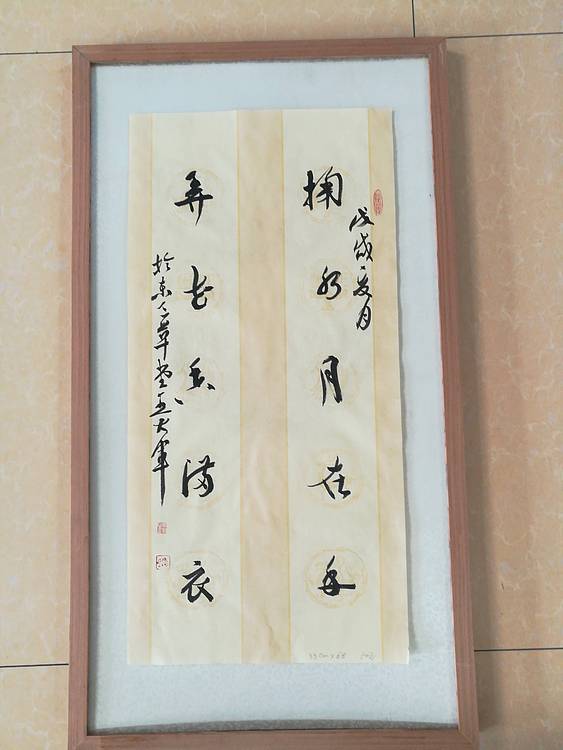 戊戌夏月
掬水月在手
弄花香满衣
於東人草堂王大軍